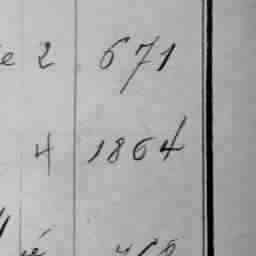 e 2 671
4 1864